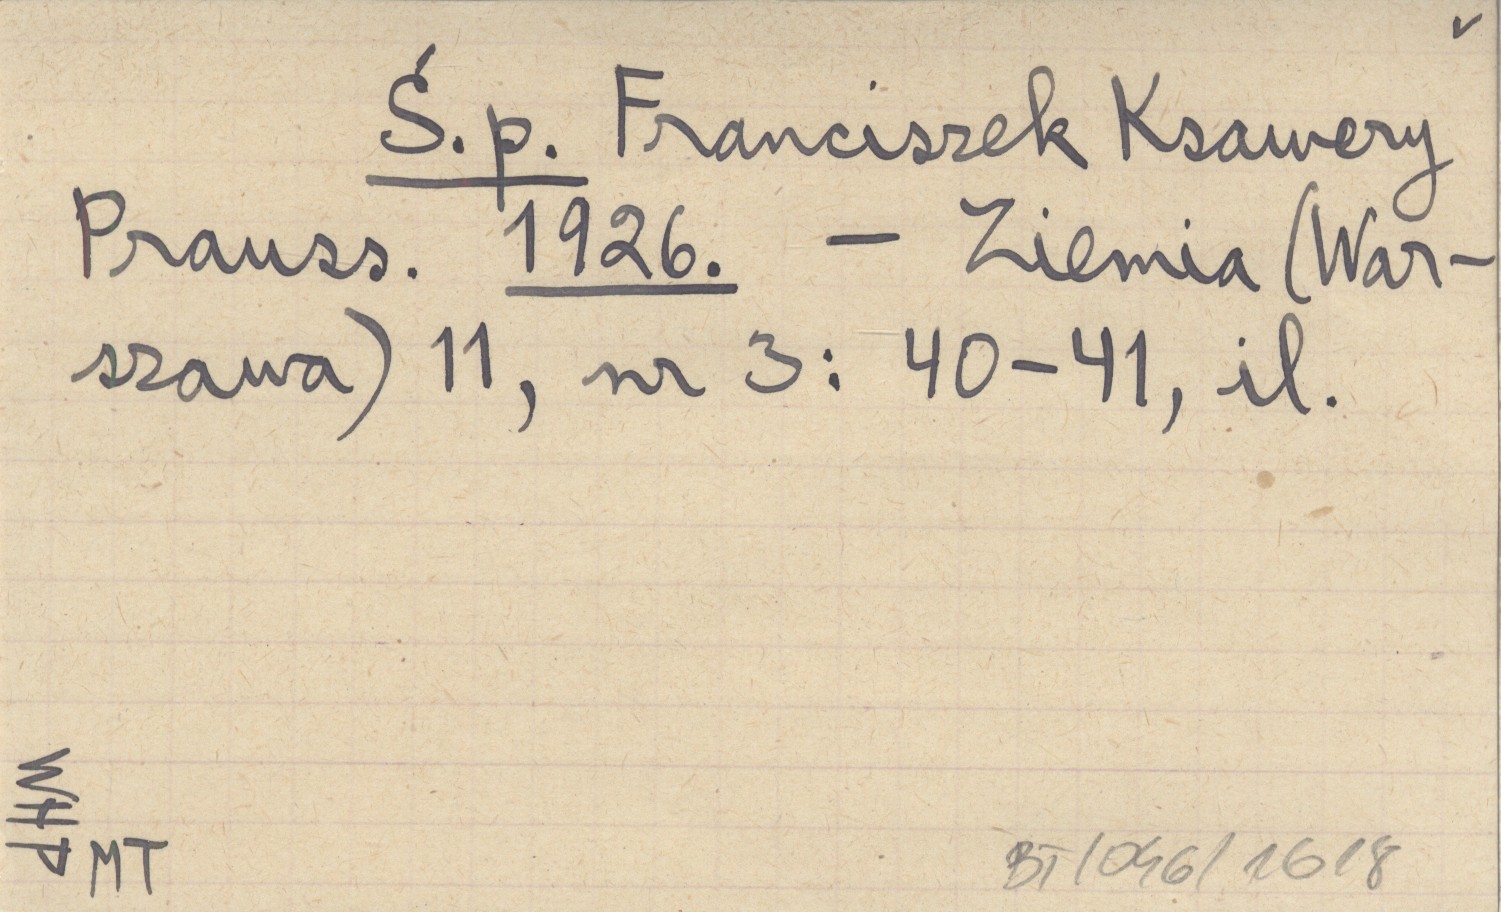 Ś.p. Franciszek Ksawery
Prauss. 1926. — Ziemia (War-
szawa) 11, nr 3: 40-41, il.
WHP
MT
BT/046/1618